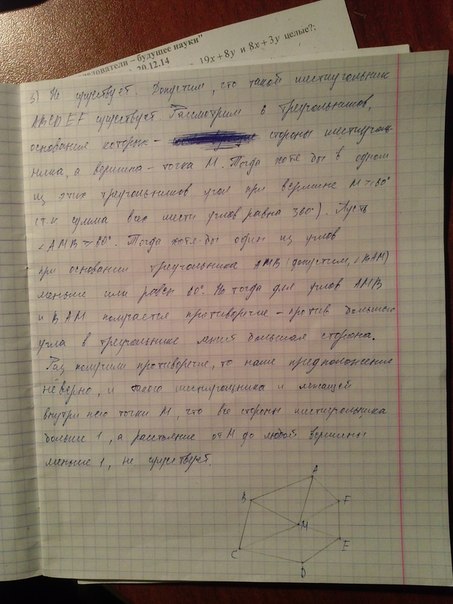 дователи – будущее науки"
20.12.14
19x + 8y и 8x + 3y целые?:
3) Не существует. Допустим, что такой шестиугольник
ABCDEF существует. Рассмотрим 6 треугольников,
основания которых – стороны шестиуголь-
ника, а вершина – точка М. Тогда хотя бы в одном
из этих треугольников угол при вершине М ≥ 60°
(т.к сумма всех шести углов равна 360°). Пусть
∠AMB ≥ 60°. Тогда хотя бы один из углов
при основании треугольника AMB (допустим, ∠BAM)
меньше или равен 60°. Но тогда для углов AMB
и BAM получается противоречие – против большего
угла в треугольнике лежит большая сторона.
Раз получили противоречие, то наше предположение
неверно, и такого шестиугольника и лежащей
внутри него точки М, что все стороны шестиугольника
больше 1, а расстояние от М до любой вершины
меньше 1, не существует.
A
B
F
M
C
E
D